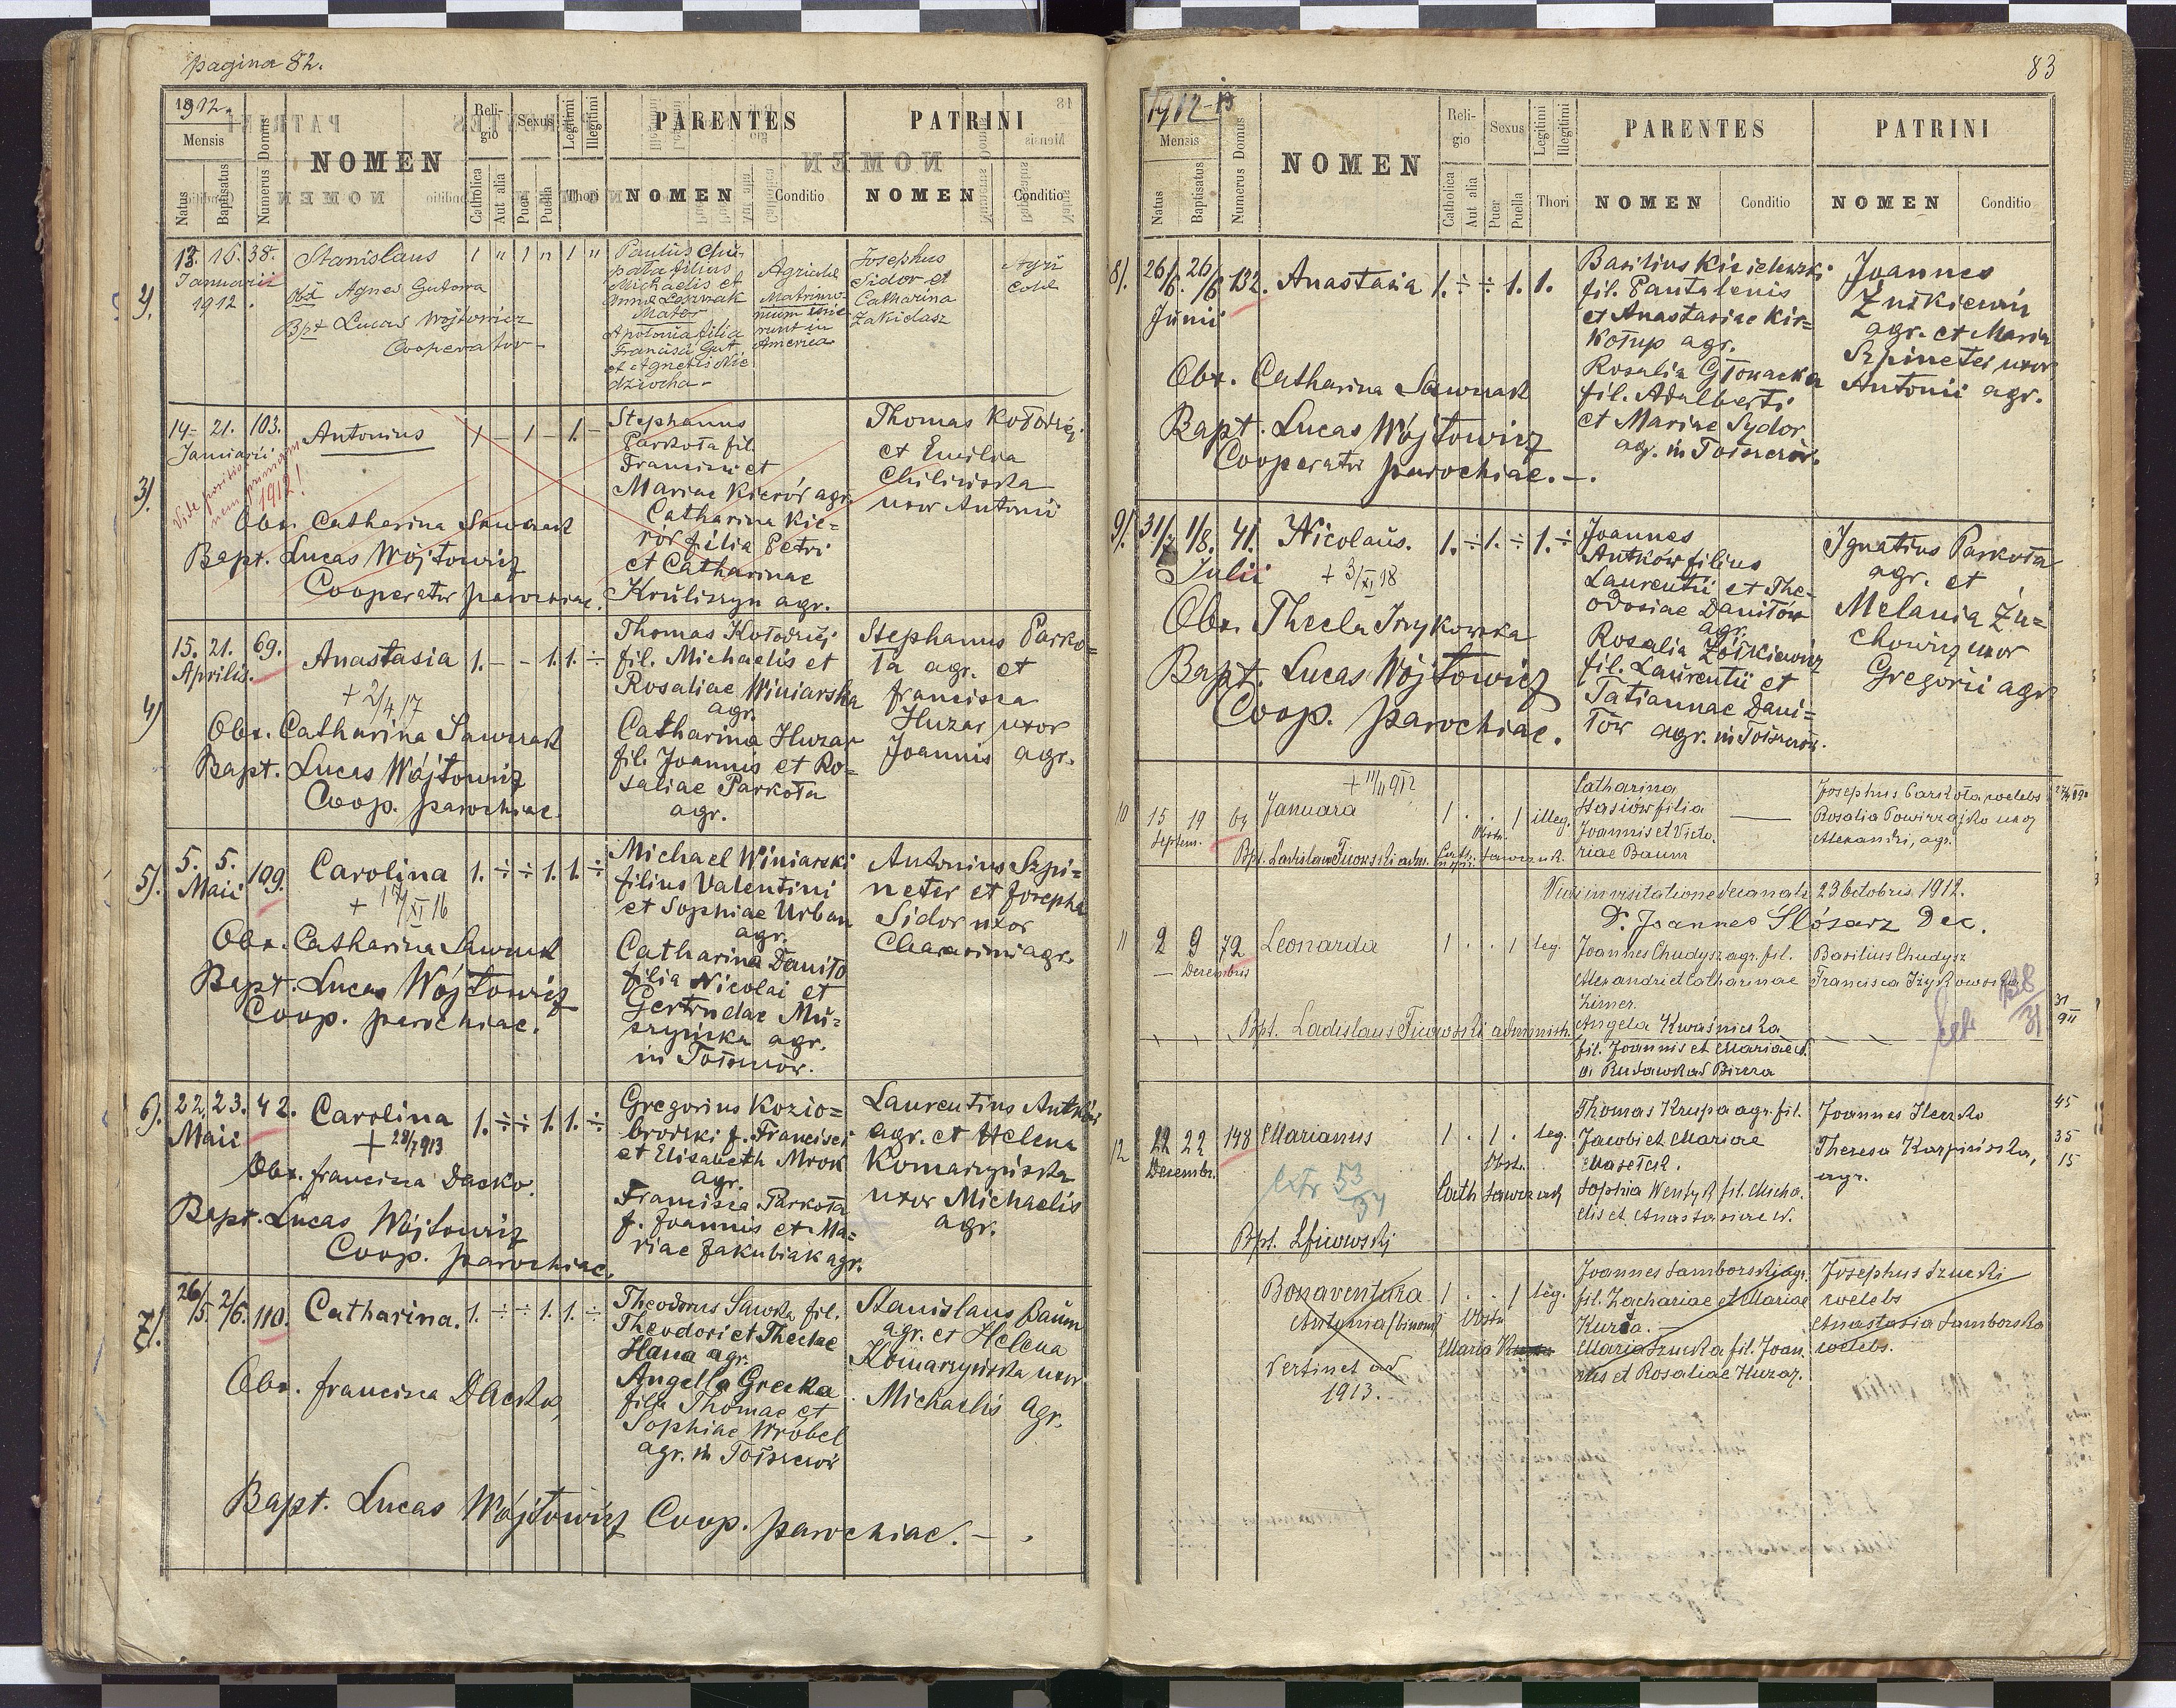 pagina 82.
1912.
Mensis
Natus
Baptisatus
Numerus Domus
NOMEN
Religio
Catholica
Aut alia
Sexus
Puer
Puella
Legitimi
Illegitimi
Thori
PARENTES
NOMEN
Conditio
PATRINI
NOMEN
Conditio
2).
13. 16. 38.
Januarii
1912.
Stanislaus
1 " 1 " 1 "
Obst Agnes Gutowa
Bpt Lucas Wojtowicz
Cooperator
Michaelis et
Mater
Apolonia filia
Francisci Gut
et Agnetis Nie
dziocha
Agricolae
Matrimo-
nium inie
runt in
America
Josephus
Sidor et
Catharina
Zakidasz
Agri
colae
3).
14 21. 103.
Januarii
Antonius
1 - 1 - 1. -
Vide positio
nem primam
1912!
Obx. Catharina Sawczak
Bapt. Lucas Wójtowicz
Cooperator parochiae.
Stephanus
Parkoła fil.
Francisci et
Mariae Kieroř agr.
Catharina Kie=
roř filia Petri
et Catharinae
Kruliszyn agr.
Thomas Kołodziej
et Emilia
Chilińska
uxor Antonii
4)
15. 21. 69.
Aprilis.
Anastasia
1. - - 1. 1. ÷
+ 2/4 17
Obx. Catharina Sawczak
Bapt. Lucas Wójtowicz
Coop. parochiae.
Thomas Kołodziej
fil. Michaelis et
Rosaliae Winiarska
agr.
Catharina Huzar
fil. Joannis et Ro=
saliae Parkoła
agr.
Stephanus Parko=
ła agr. et
Francisca
Huzar uxor
Joannis agr.
5).
5. 5. 109.
Maii
Carolina
1. ÷ ÷ 1. 1. ÷
+ 17/XI 16
Obx. Catharina Sawczak
Bapt. Lucas Wójtowicz
Coop. parochiae.
Michael Winiarski
filius Valentini
et Sophiae Urban
agr.
Catharina Daniło
filia Nicolai et
Gertrudae Mu=
szyńska agr.
in Toiszczów.
Antonius Szpi=
neter et Josepha
Sidor uxor
agr.
6).
22. 23. 42.
Maii
Carolina
1. ÷ ÷ 1. 1. ÷
+ 28/7 913
Obx. Francisca Dacko.
Bapt. Lucas Wójtowicz
Coop. parochiae.
Gregorius Kozio=
brodzki f. Francisci
et Elisabeth Mrok
agr.
Francisca Parkoła
f. Joannis et Ma=
riae Jakubiak agr.
Laurentius Antków
agr. et Helena
Komarzyńska
uxor Michaelis
agr.
7).
26/5. 2/6. 110.
Catharina.
1. ÷ ÷ 1. 1. ÷
Obx. Francisca Dacko,
Bapt. Lucas Wójtowicz Coop. parochiae. -
Theodorus Sawka fil.
Theodori et Theclae
Hana agr.
Angella Grecka
filia Thomae et
Sophiae Wróbel
agr. in Toiszczów
Stanislaus Baum
agr. et Helena
Komarzyńska uxor
Michaelis agr.
83
1912-13
Mensis
Natus
Baptisatus
Numerus Domus
NOMEN
Religio
Catholica
Aut alia
Sexus
Puer
Puella
Legitimi
Illegitimi
Thori
PARENTES
NOMEN
Conditio
PATRINI
NOMEN
Conditio
8).
26/6. 26/6 132.
Junii
Anastasia
1. ÷ ÷ 1. 1.
Obx. Catharina Sawczak
Bapt. Lucas Wójtowicz
Cooperator parochiae. -.
fil. Pantalenis
et Anastasiae Kir=
kołup agr.
Rosalia Głowacka
fil. Adalberti
et Mariae Sydor
agr. in Toiszczów.
Joannes
Żułkiewicz
agr. et Maria
Szpineter uxor
Antonii agr.
9).
31/7 1/8. 41.
Julii
Nicolaus.
1. ÷ 1. ÷ 1. ÷
+ 3/XI 18
Obx. Thecla Irzykowska
Bapt. Lucas Wójtowicz
Coop. parochiae.
Joannes
Antków filius
Laurentii et The-
odosiae Daniłów
agr.
Rosalia Żółkiewicz
fil. Laurentii et
Tatiannae Dani=
łów agr. in Toiszczów.
Ignatius Parkoła
agr. et
Melania Żu=
chowicz uxor
Gregorii agr.
10
15 19 64
Septem.
+ 11/11 912
Januara
1 . . 1 illeg.
Obstr.
Bpt. Ladislaus Ficowski adm. Cath. Sawczak.
Catharina
Stasiów filia
Joannis et Victo.
riae Baum
Josephus Parkoła coelebs
Rosalia Powirzajko uxor
Alexandri, agr.
Vidi in visitatione decanali 23 Octobris 1912.
Dr. Joannes Slósarz Dec.
11
2 9 72
Decembris
Leonarda
1 . . 1 leg.
Bpt. Ladislaus Ficowski administr.
Joannes Chudysz agr. fil.
Alexandri et Catharinae
Angela Kwaśnicka
fil. Joannis et Mariae
Basilius Chudysz
Francisca Irzykowska
31
911
12
22 22 148
Decembr.
Marianus
1 . 1 . leg.
Obstr.
Cath Sawczak
Extr 53/54
Bpt. LFicowski
Thomas Krupa agr. fil.
Jacobi et Mariae
Sophia Wentyk fil. Micha.
elis et Anastasiae W.
Joannes Hecko
Theresa Karpińska,
agr.
45
35
15
Bonaventura
Antonia (binom)
1 . . 1 leg.
Obstr
Maria
Pertinet ad
1913.
Joannes Samborski agr.
fil. Zachariae et Mariae
Maria Szucka fil. Joan.
nis et Rosaliae Huzar.
Josephus Szucki
coelebs
Anastasia Samborska
coelebs.